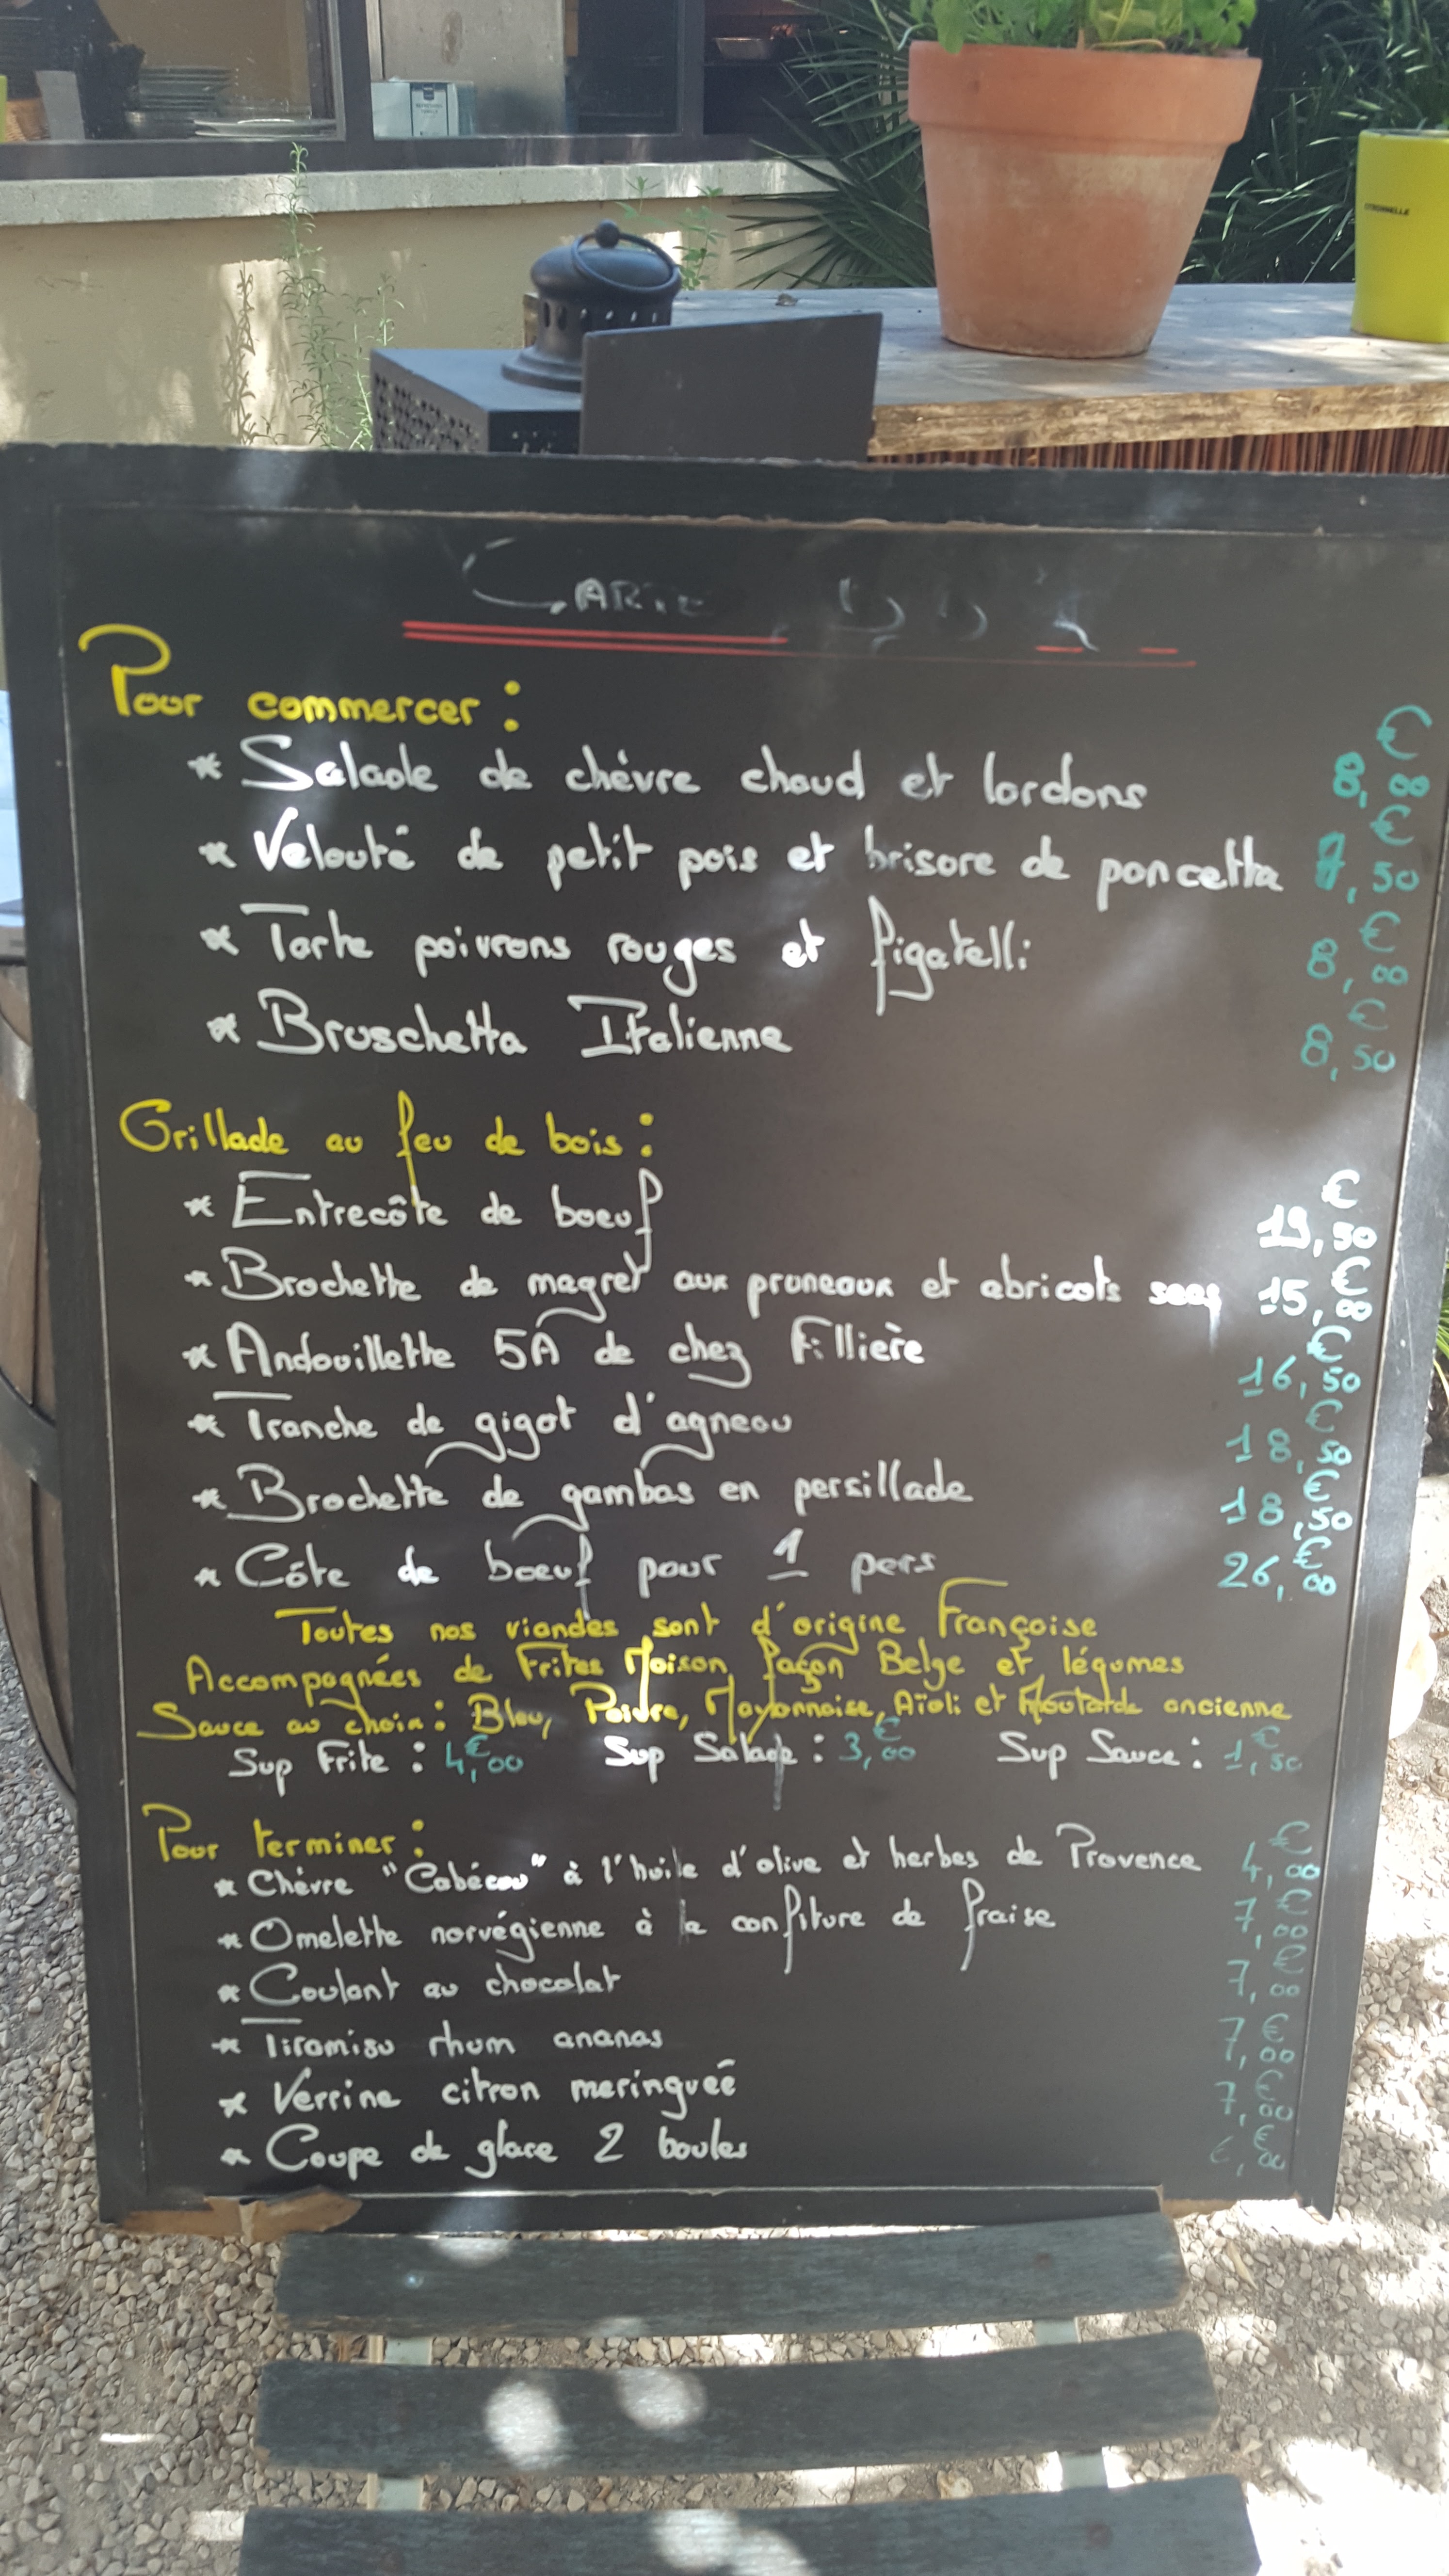 CITRONNELLE
CARTE
Pour commercer :
* Salade de chèvre chaud et lardons 8,€00
* Velouté de petit pois et brisore de pancetta 7,€50
* Tarte poivrons rouges et figatelli 8,€00
* Bruschetta Italienne 8,€50
Grillade au feu de bois :
* Entrecôte de boeuf 19,€50
* Brochette de magret aux pruneaux et abricots secs 15,€00
* Andouillette 5A de chez Fillière 16,€50
* Tranche de gigot d'agneau 18,€50
* Brochette de gambas en persillade 18,€50
* Côte de boeuf pour 1 pers 26,€00
Toutes nos viandes sont d'origine Française
Accompagnées de Frites Maison façon Belge et légumes
Sauce au choix : Bleu, Poivre, Mayonnaise, Aïoli et Moutarde ancienne
Sup Frite : 4,€00 Sup Salade : 3,€00 Sup Sauce : 1,€50
Pour terminer :
* Chèvre "Cabécou" à l'huile d'olive et herbes de Provence 4,€00
* Omelette norvégienne à la confiture de fraise 7,€00
* Coulant au chocolat 7,€00
* Tiramisu rhum ananas 7,€00
* Verrine citron meringuée 7,€00
* Coupe de glace 2 boules